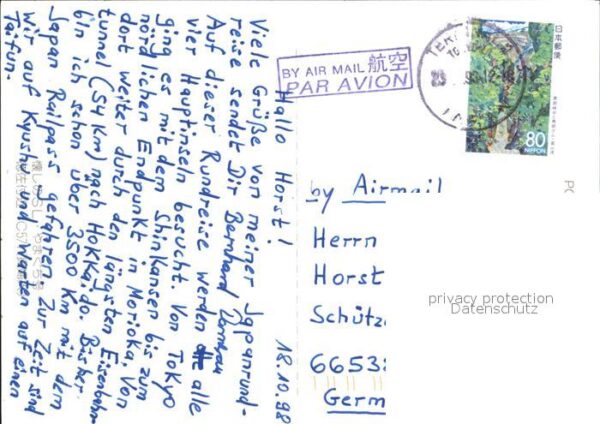 18.10.98
Hallo Horst!
Viele Grüße von meiner Japanrund-
reise sendet Dir Bernhard
Auf dieser Rundreise werden alle
vier Hauptinseln besucht. Von Tokyo
ging es mit dem Shinkansen bis zum
nördlichen Endpunkt in Morioka. Von
dort weiter durch den längsten Eisenbahn-
tunnel (54 Km) nach Hokkaido. Bisher
bin ich schon über 3500 Km mit dem
Japan Railpass gefahren. Zur Zeit sind
wir auf Kyushu und warten auf einen
Taifun.
BY AIR MAIL 航空
PAR AVION
日本郵便
80
NIPPON
by Airmail
Herrn
Horst
Schütz
6653
Germ
privacy protection
Datenschutz
PO